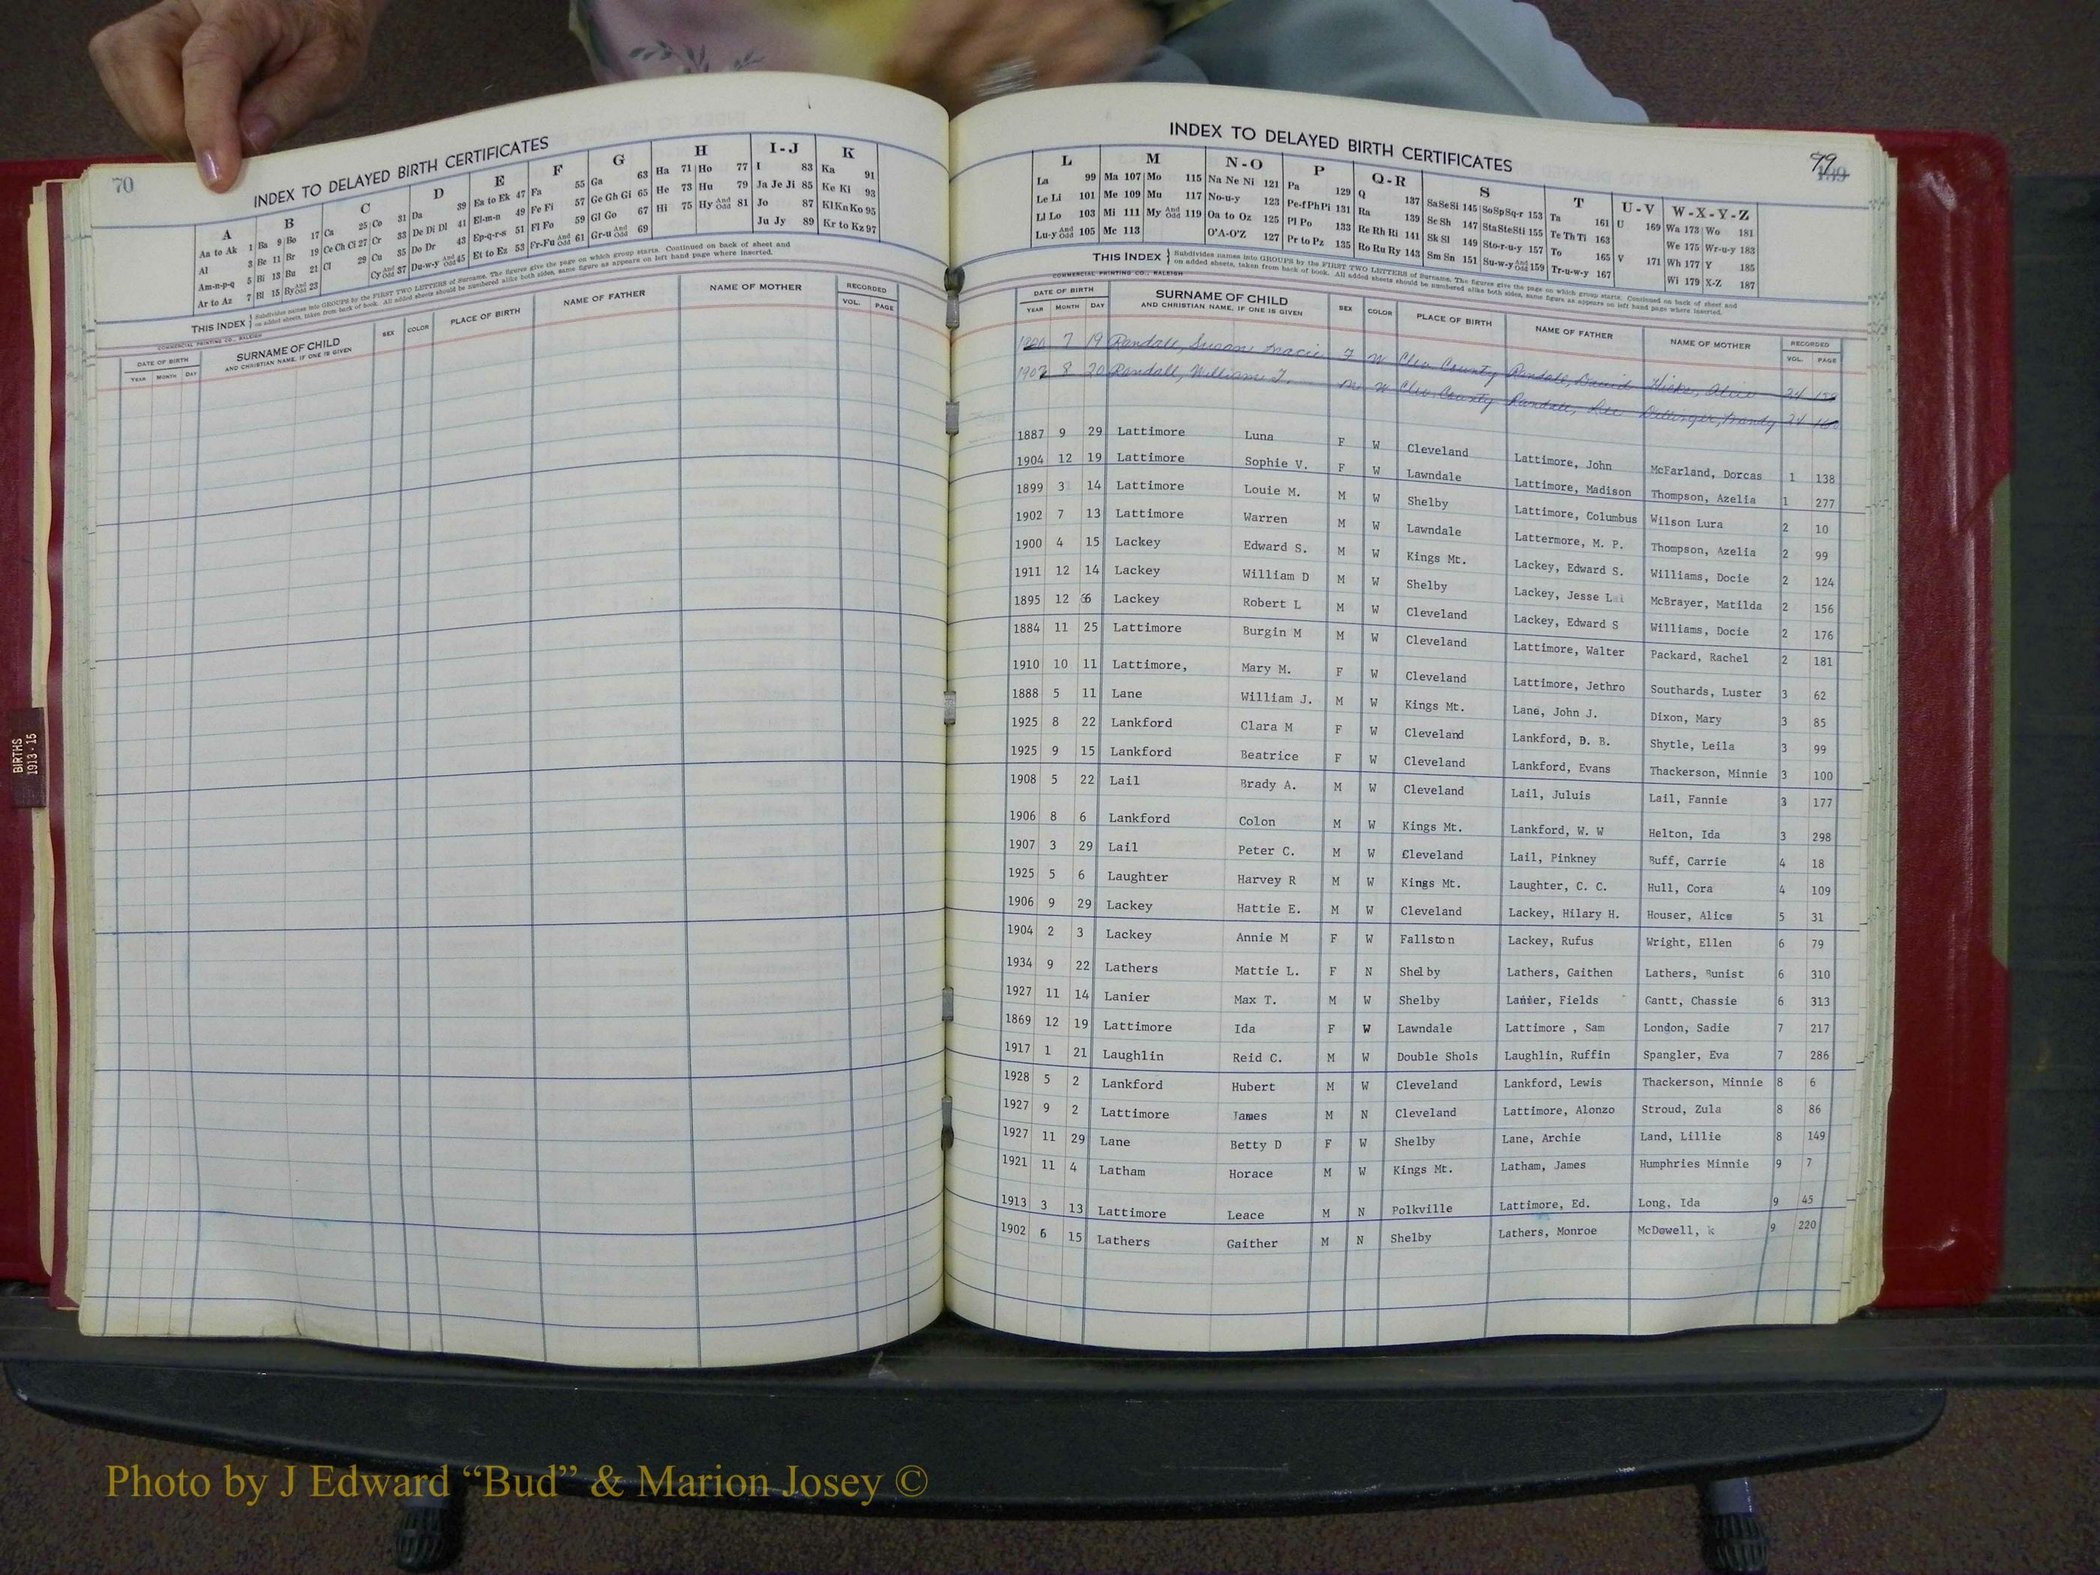 70
INDEX TO DELAYED BIRTH CERTIFICATES
A B C D E F G H I-J K
Aa to Ak 1 Ba 9 Bo 17 Ca 25 Co 31 Da 39 Ea to Ek 47 Fa 55 Ga 63 Ha 71 Ho 77 I 83 Ka 91
Al 3 Be 11 Br 19 Ce Ch Ci 27 Cr 33 De Di Dl 41 El-m-n 49 Fe Fi 57 Ge Gh Gi 65 He 73 Hu 79 Ja Je Ji 85 Ke Ki 93
Am-n-p-q 5 Bi 13 Bu 21 Cl 29 Cu 35 Do Dr 43 Ep-q-r-s 51 Fl Fo 59 Gl Go 67 Hi 75 Hy And Odd 81 Jo 87 Kl Kn Ko 95
Ar to Az 7 Bl 15 By And Odd 23 Cy And Odd 37 Du-w-y And Odd 45 Et to Ez 53 Fr-Fu And Odd 61 Gr-u And Odd 69 Ju Jy 89 Kr to Kz 97
THIS INDEX Subdivides names into GROUPS by the FIRST TWO LETTERS of Surname. The figures give the page on which group starts. Continued on back of sheet and
on added sheets, taken from back of book. All added sheets should be numbered alike both sides, same figure as appears on left hand page where inserted.
COMMERCIAL PRINTING CO., RALEIGH
DATE OF BIRTH YEAR MONTH DAY SURNAME OF CHILD AND CHRISTIAN NAME, IF ONE IS GIVEN SEX COLOR PLACE OF BIRTH NAME OF FATHER NAME OF MOTHER RECORDED VOL. PAGE
BIRTHS
1913-15
99
INDEX TO DELAYED BIRTH CERTIFICATES
L M N-O P Q-R S T U-V W-X-Y-Z
La 99 Ma 107 Mo 115 Na Ne Ni 121 Pa 129 Q 137 Sa Se Si 145 So Sp Sq-r 153 Ta 161 U 169 Wa 173 Wo 181
Le Li 101 Me 109 Mu 117 No-u-y 123 Pe-f Ph Pi 131 Ra 139 Sc Sh 147 Sta Ste Sti 155 Te Th Ti 163 We 175 Wr-u-y 183
Ll Lo 103 Mi 111 My And Odd 119 Oa to Oz 125 Pl Po 133 Re Rh Ri 141 Sk Sl 149 Sto-r-u-y 157 To 165 V 171 Wh 177 Y 185
Lu-y And Odd 105 Mc 113 O'A-O'Z 127 Pr to Pz 135 Ro Ru Ry 143 Sm Sn 151 Su-w-y And Odd 159 Tr-u-w-y 167 Wi 179 X-Z 187
THIS INDEX Subdivides names into GROUPS by the FIRST TWO LETTERS of Surname. The figures give the page on which group starts. Continued on back of sheet and
on added sheets, taken from back of book. All added sheets should be numbered alike both sides, same figure as appears on left hand page where inserted.
COMMERCIAL PRINTING CO., RALEIGH
DATE OF BIRTH YEAR MONTH DAY SURNAME OF CHILD AND CHRISTIAN NAME, IF ONE IS GIVEN SEX COLOR PLACE OF BIRTH NAME OF FATHER NAME OF MOTHER RECORDED VOL. PAGE
7 19 Randall, Susane F W Clev. County Randall, David Hicks, Alice 24
1902 8 20 Randall, William F. M W Clev. County Randall, Lee Dellinger, 24 160
1887 9 29 Lattimore Luna F W Cleveland Lattimore, John McFarland, Dorcas 1 138
1904 12 19 Lattimore Sophie V. F W Lawndale Lattimore, Madison Thompson, Azelia 1 277
1899 3 14 Lattimore Louie M. M W Shelby Lattimore, Columbus Wilson Lura 2 10
1902 7 13 Lattimore Warren M W Lawndale Lattermore, M. P. Thompson, Azelia 2 99
1900 4 15 Lackey Edward S. M W Kings Mt. Lackey, Edward S. Williams, Docie 2 124
1911 12 14 Lackey William D M W Shelby Lackey, Jesse McBrayer, Matilda 2 156
1895 12 6 Lackey Robert L M W Cleveland Lackey, Edward S Williams, Docie 2 176
1884 11 25 Lattimore Burgin M M W Cleveland Lattimore, Walter Packard, Rachel 2 181
1910 10 11 Lattimore, Mary M. F W Cleveland Lattimore, Jethro Southards, Luster 3 62
1888 5 11 Lane William J. M W Kings Mt. Lane, John J. Dixon, Mary 3 85
1925 8 22 Lankford Clara M F W Cleveland Lankford, D. B. Shytle, Leila 3 99
1925 9 15 Lankford Beatrice F W Cleveland Lankford, Evans Thackerson, Minnie 3 100
1908 5 22 Lail Brady A. M W Cleveland Lail, Juluis Lail, Fannie 3 177
1906 8 6 Lankford Colon M W Kings Mt. Lankford, W. W Helton, Ida 3 298
1907 3 29 Lail Peter C. M W Cleveland Lail, Pinkney Buff, Carrie 4 18
1925 5 6 Laughter Harvey R M W Kings Mt. Laughter, C. C. Hull, Cora 4 109
1906 9 29 Lackey Hattie E. M W Cleveland Lackey, Hilary H. Houser, Alice 5 31
1904 2 3 Lackey Annie M F W Fallston Lackey, Rufus Wright, Ellen 6 79
1934 9 22 Lathers Mattie L. F N Shelby Lathers, Gaithen Lathers, Bunist 6 310
1927 11 14 Lanier Max T. M W Shelby Lanier, Fields Gantt, Chassie 6 313
1869 12 19 Lattimore Ida F W Lawndale Lattimore , Sam London, Sadie 7 217
1917 1 21 Laughlin Reid C. M W Double Shols Laughlin, Ruffin Spangler, Eva 7 286
1928 5 2 Lankford Hubert M W Cleveland Lankford, Lewis Thackerson, Minnie 8 6
1927 9 2 Lattimore James M N Cleveland Lattimore, Alonzo Stroud, Zula 8 86
1927 11 29 Lane Betty D F W Shelby Lane, Archie Land, Lillie 8 149
1921 11 4 Latham Horace M W Kings Mt. Latham, James Humphries Minnie 9 7
1913 3 13 Lattimore Leace M N Polkville Lattimore, Ed. Long, Ida 9 45
1902 6 15 Lathers Gaither M N Shelby Lathers, Monroe McDowell, k 9 220
Photo by J Edward “Bud” & Marion Josey ©